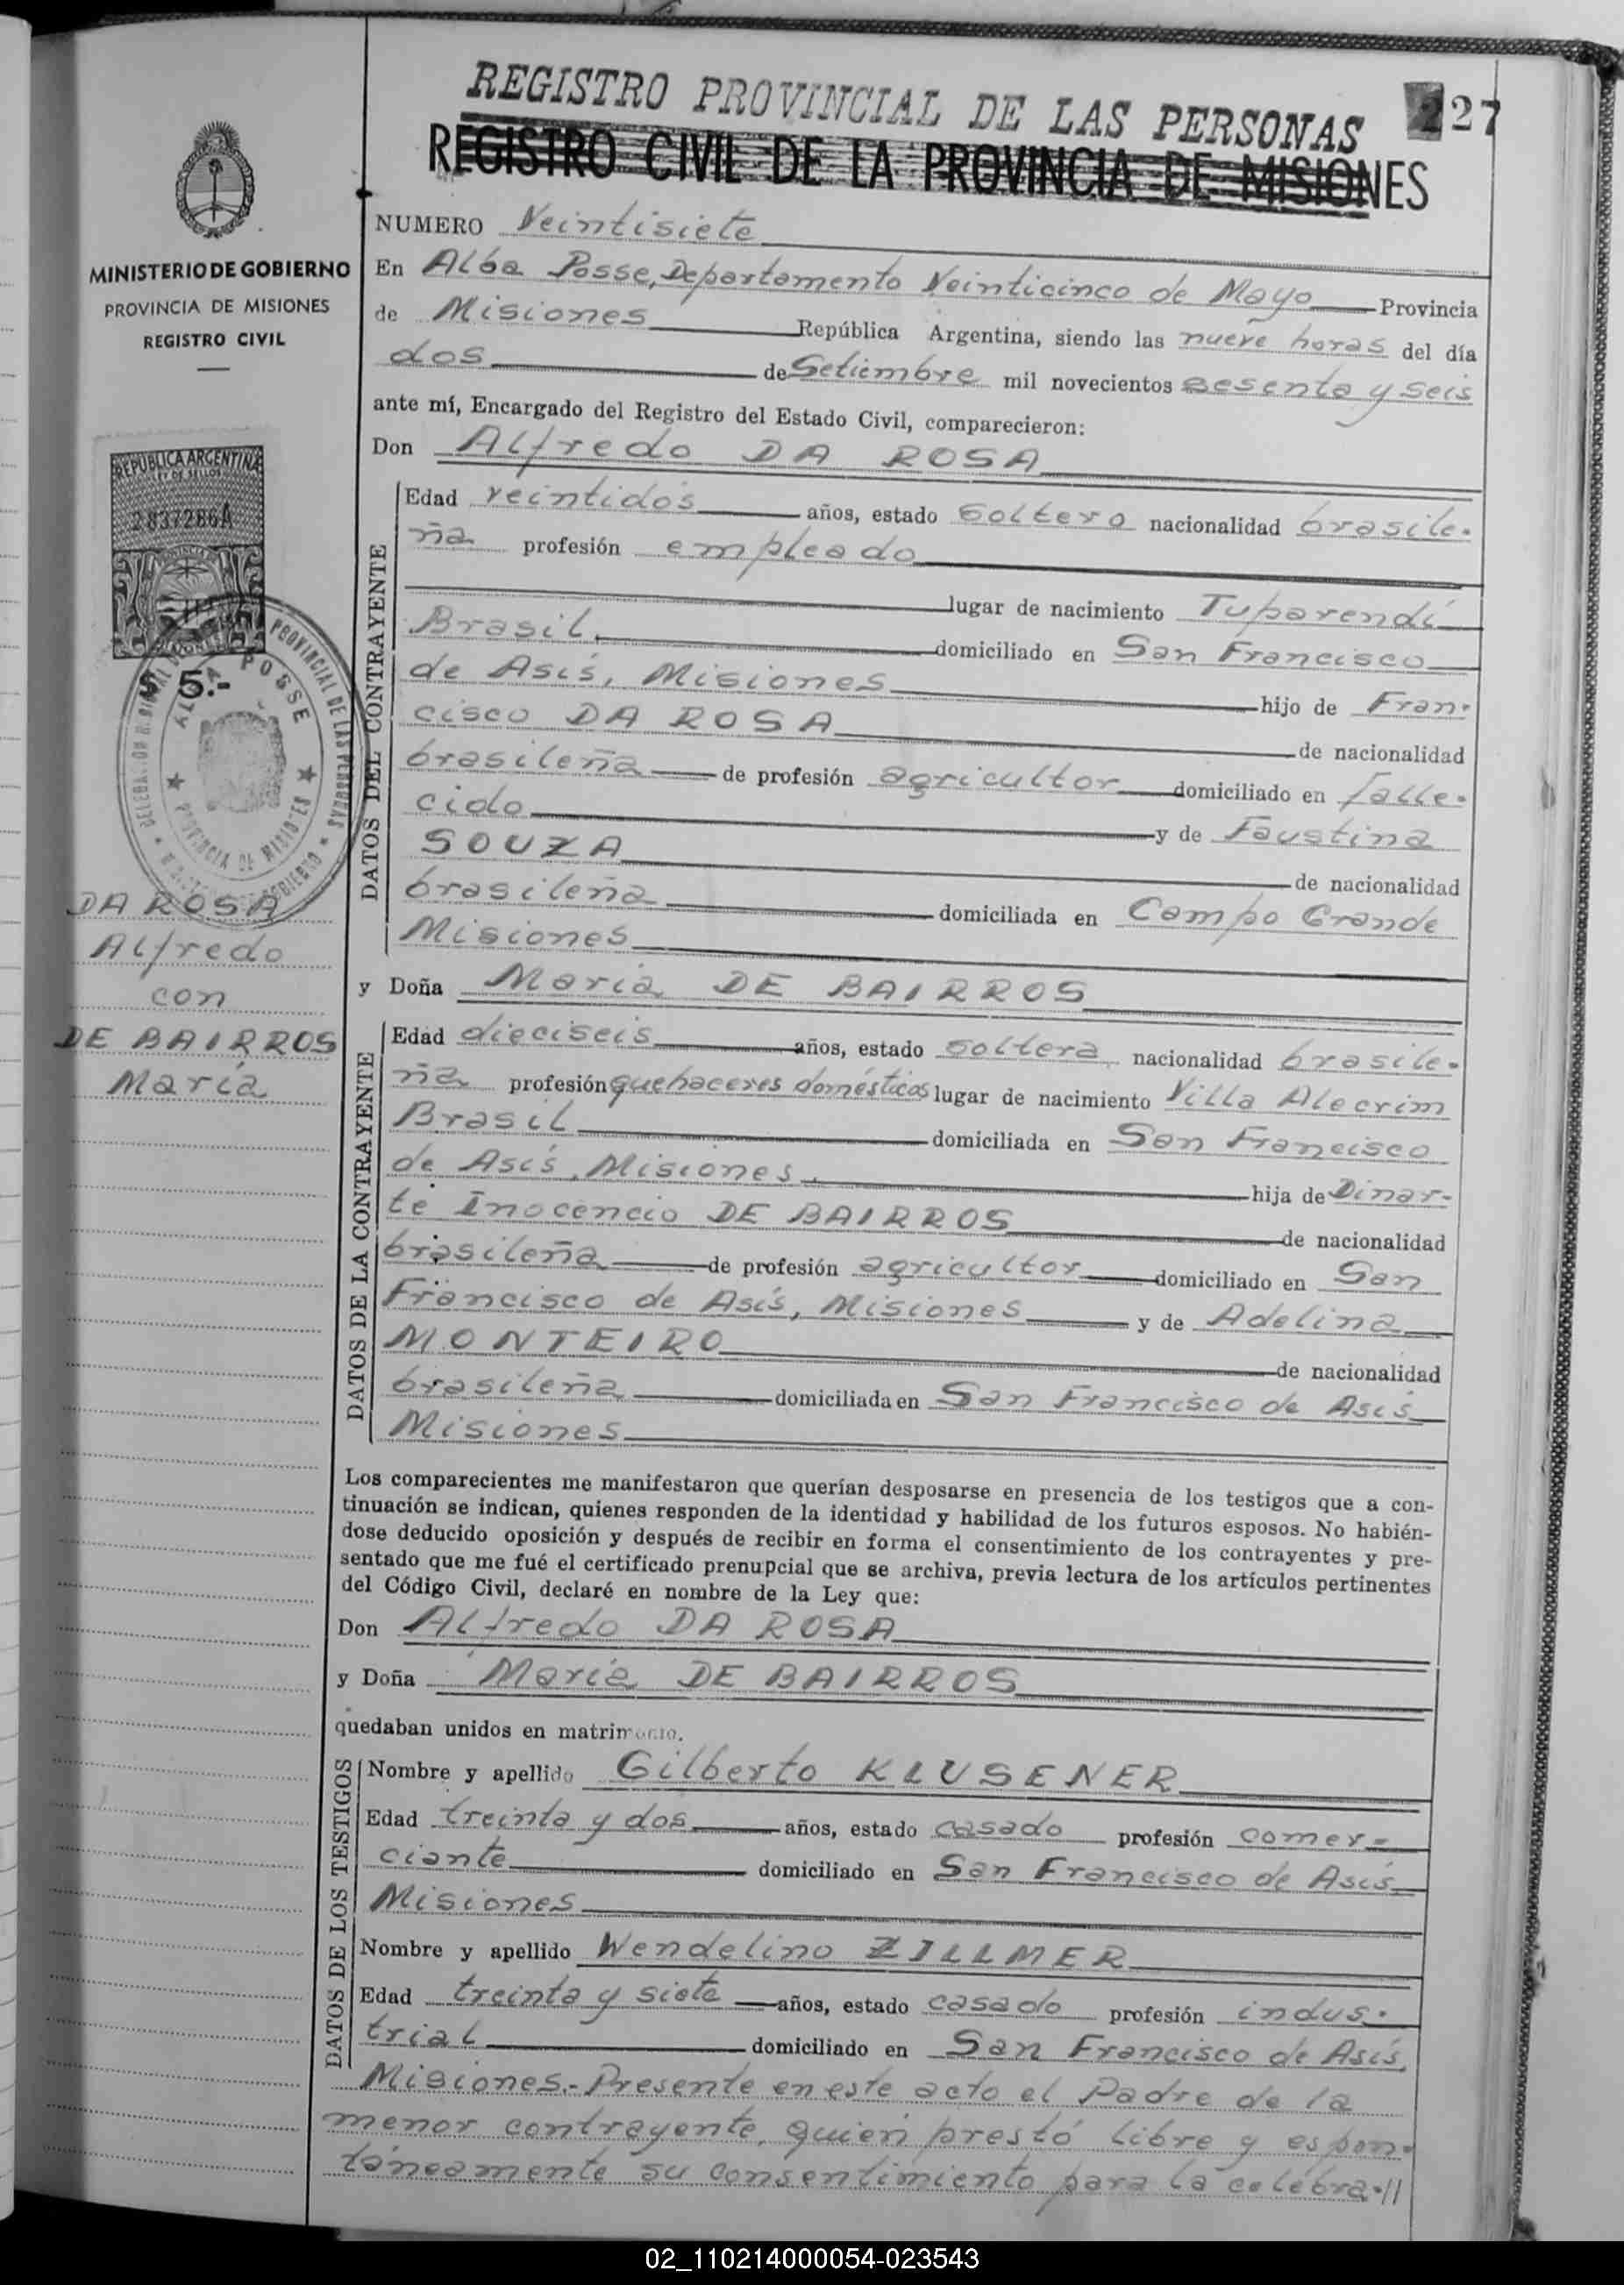 REGISTRO PROVINCIAL DE LAS PERSONAS
227
REGISTRO CIVIL DE LA PROVINCIA DE MISIONES
MINISTERIO DE GOBIERNO
PROVINCIA DE MISIONES
REGISTRO CIVIL
REPUBLICA ARGENTINA
LEY DE SELLOS
2837286A
$ 5.-
DA ROSA
Alfredo
con
DE BAIRROS
María
NUMERO Veintisiete
En Alba Posse, Departamento Veinticinco de Mayo Provincia
de Misiones República Argentina, siendo las nueve horas del día
dos de Setiembre mil novecientos sesenta y seis
ante mí, Encargado del Registro del Estado Civil, comparecieron:
Don Alfredo DA ROSA
DATOS DEL CONTRAYENTE
Edad veintidós años, estado soltero nacionalidad brasile-
ña profesión empleado
lugar de nacimiento Tuparendí
Brasil, domiciliado en San Francisco
de Asís, Misiones hijo de Fran-
cisco DA ROSA de nacionalidad
brasileña de profesión agricultor domiciliado en falle-
cido y de Faustina
SOUZA de nacionalidad
brasileña domiciliada en Campo Grande
Misiones
y Doña María DE BAIRROS
DATOS DE LA CONTRAYENTE
Edad dieciseis años, estado soltera nacionalidad brasile-
ña profesión quehaceres domésticos lugar de nacimiento Villa Alecrim
Brasil domiciliada en San Francisco
de Asís, Misiones, hija de Dinar-
te Inocencio DE BAIRROS de nacionalidad
brasileña de profesión agricultor domiciliado en San
Francisco de Asís, Misiones y de Adelina
MONTEIRO de nacionalidad
brasileña domiciliada en San Francisco de Asís
Misiones
Los comparecientes me manifestaron que querían desposarse en presencia de los testigos que a con-
tinuación se indican, quienes responden de la identidad y habilidad de los futuros esposos. No habién-
dose deducido oposición y después de recibir en forma el consentimiento de los contrayentes y pre-
sentado que me fué el certificado prenupcial que se archiva, previa lectura de los artículos pertinentes
del Código Civil, declaré en nombre de la Ley que:
Don Alfredo DA ROSA
y Doña María DE BAIRROS
quedaban unidos en matrimonio.
DATOS DE LOS TESTIGOS
Nombre y apellido Gilberto KLUSENER
Edad treinta y dos años, estado casado profesión comer-
ciante domiciliado en San Francisco de Asís
Misiones
Nombre y apellido Wendelino ZILLMER
Edad treinta y siete años, estado casado profesión indus-
trial domiciliado en San Francisco de Asís,
Misiones.- Presente en este acto el Padre de la
menor contrayente, quien prestó libre y espon-
táneamente su consentimiento para la celebra-//
02_110214000054-023543